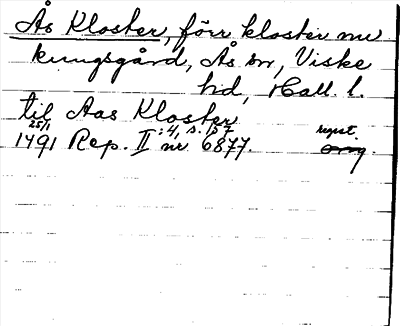 Ås Kloster, förr kloster nu
kungsgård, Ås sn, Viske
hd, Hall. l.
til Aas Kloster
25/1 :4, s. 157 regest.
1491 Rep. II nr 6877. orig.